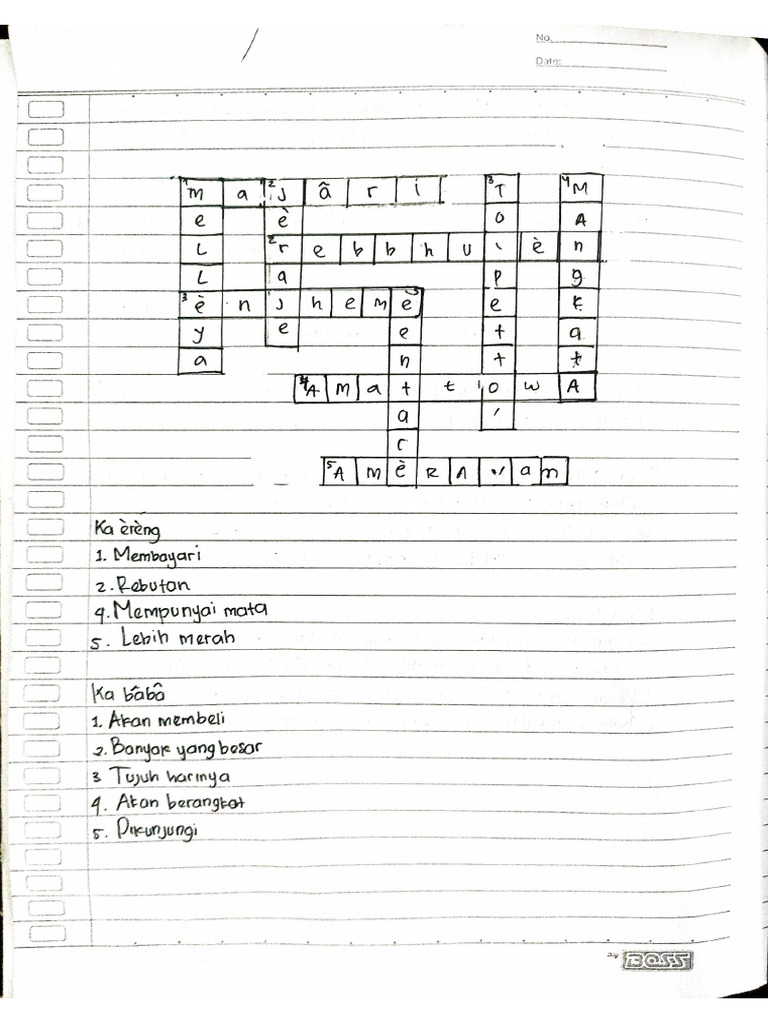 No.
Date:
1 m a 2 j â r i 3 T 4 M
e è o A
L 2 r e b b h u ' è n
L a p g
3 è n j h e m 5 è e k
y e e t a
a n t t
4 A m a t t 'o w A
a '
r
5 A M è R A " a n
Ka èrèng
1. Membayari
2. Rebutan
4. Mempunyai mata
5. Lebih merah
Ka bâbâ
1. Akan membeli
2. Banyak yang besar
3 Tujuh harinya
4. Akan berangkat
5. Dikunjungi
BOSS